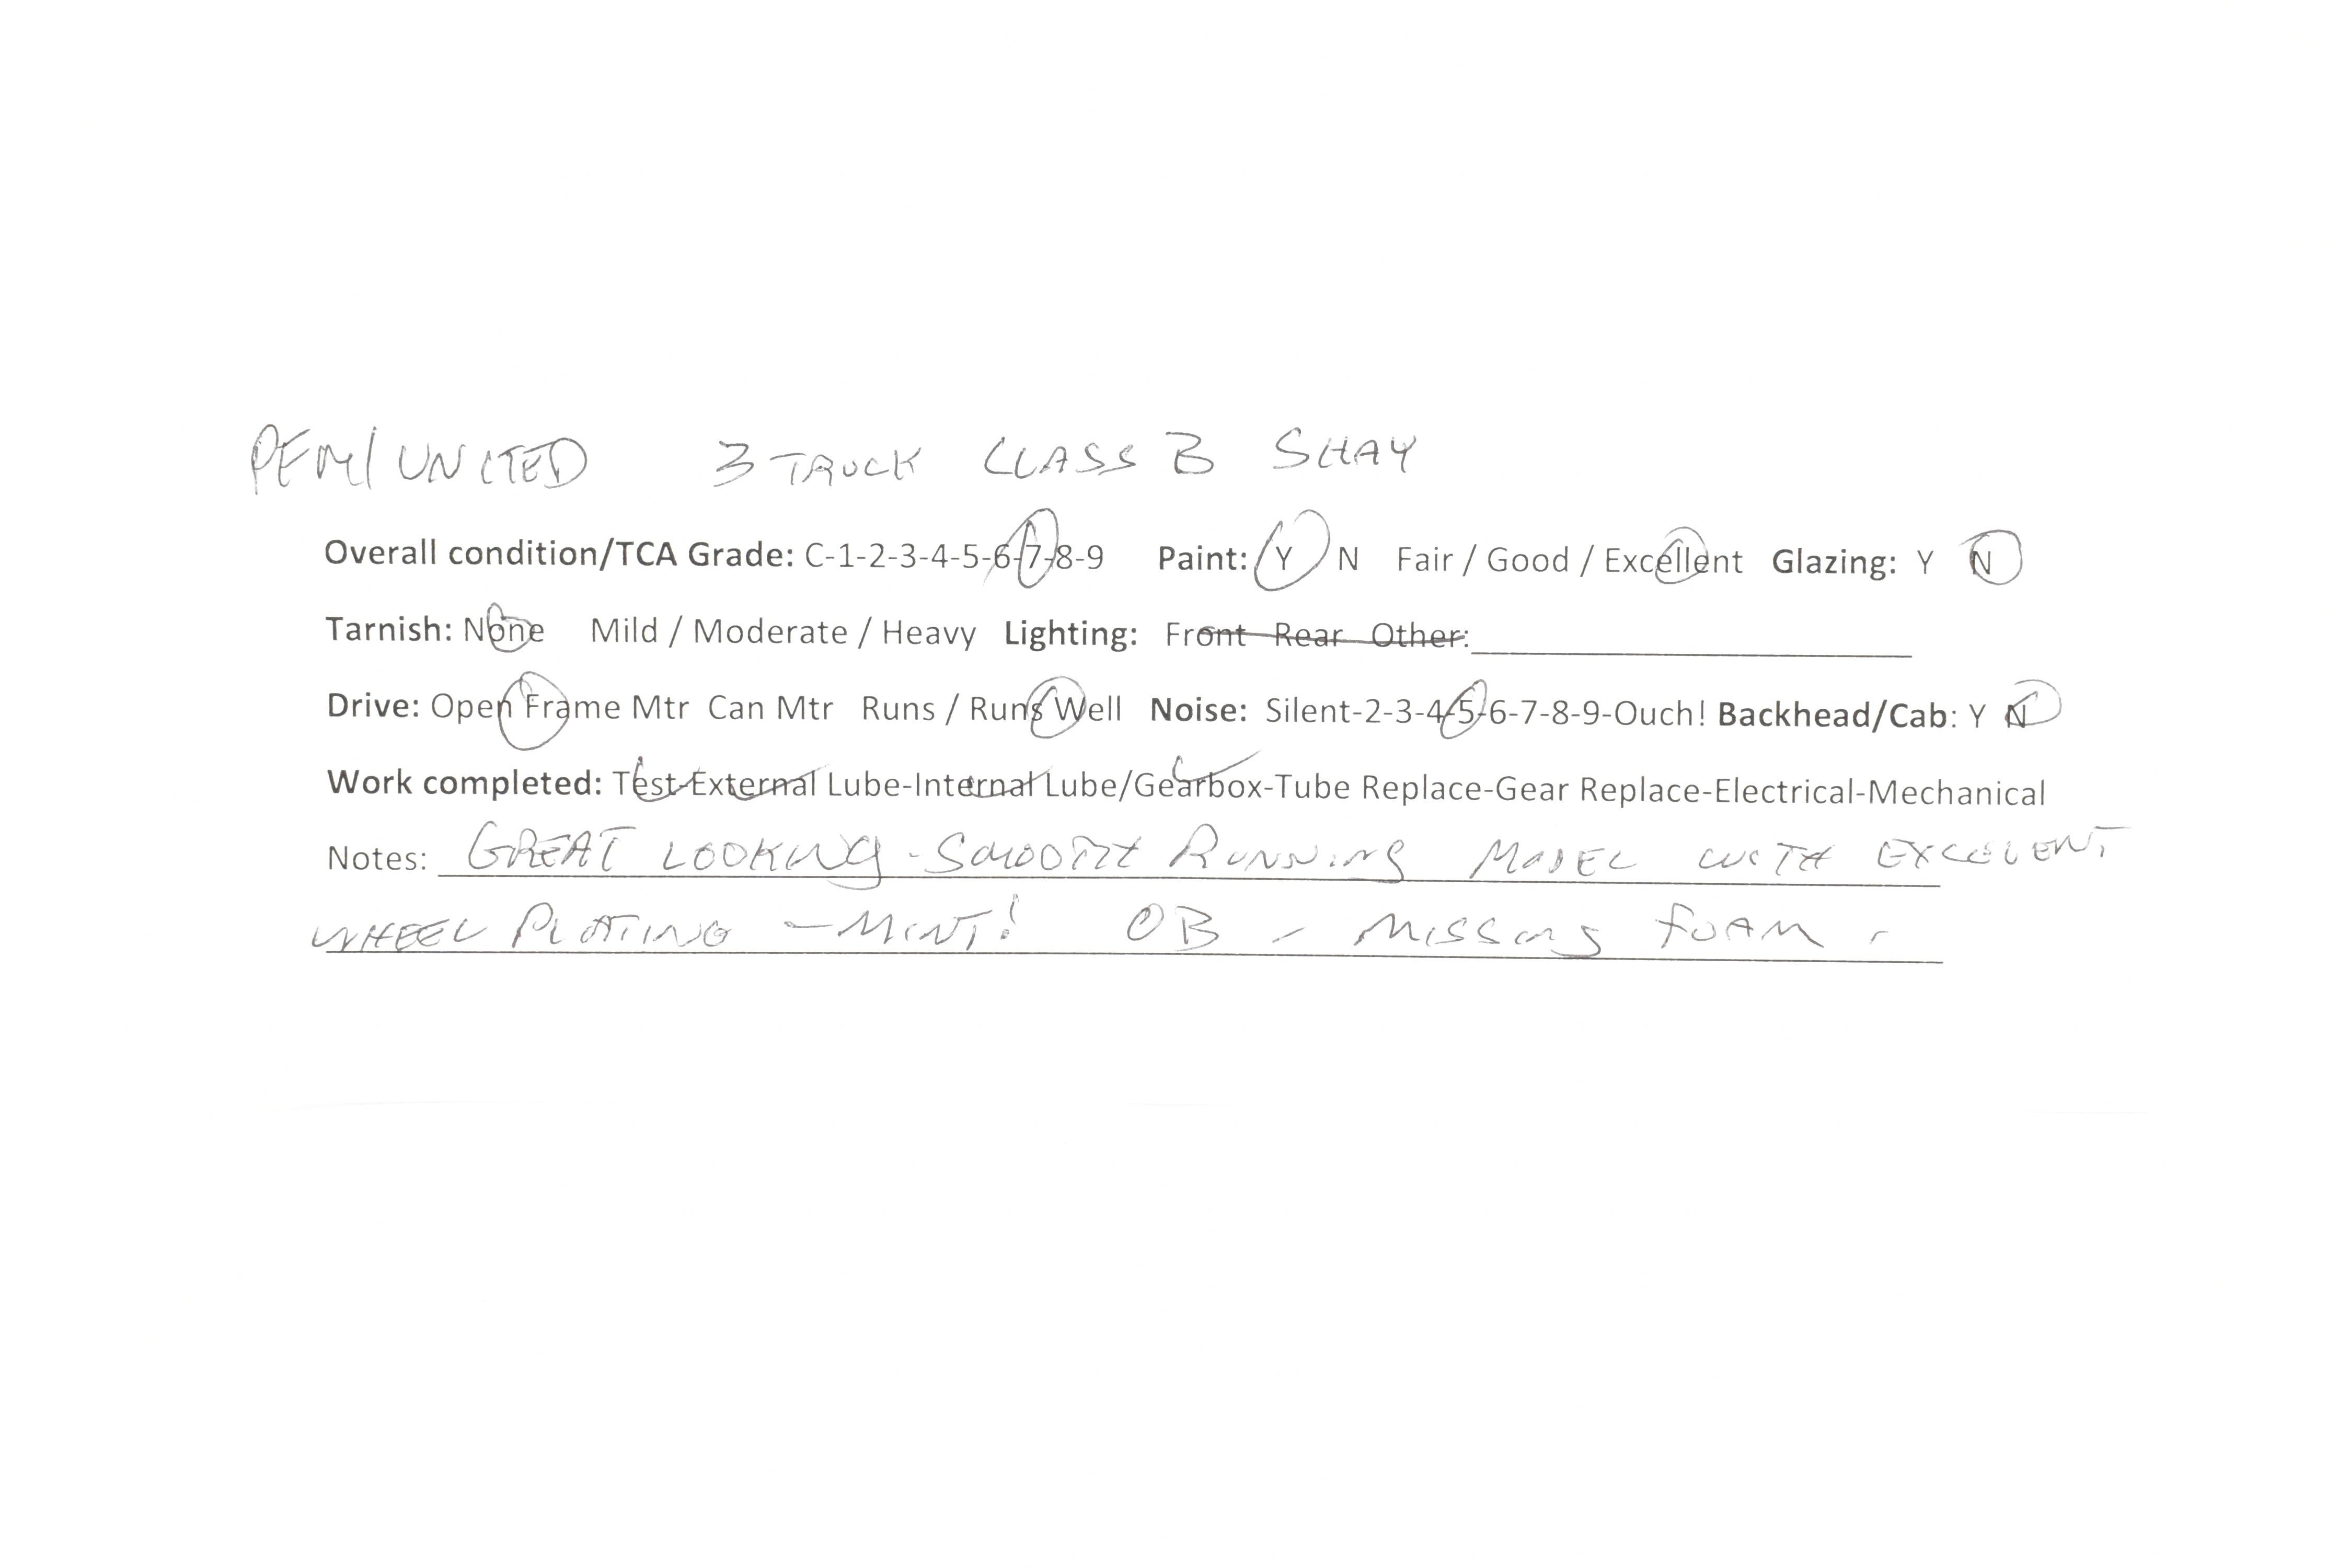 PFM/UNITED 3 TRUCK CLASS B SHAY
Overall condition/TCA Grade: C-1-2-3-4-5-6-7-8-9 Paint: Y N Fair / Good / Excellent Glazing: Y N
Tarnish: None Mild / Moderate / Heavy Lighting: Front Rear Other:
Drive: Open Frame Mtr Can Mtr Runs / Runs Well Noise: Silent-2-3-4-5-6-7-8-9-Ouch! Backhead/Cab: Y N
Work completed: Test-External Lube-Internal Lube/Gearbox-Tube Replace-Gear Replace-Electrical-Mechanical
Notes: GREAT LOOKING - SMOOTH RUNNING MODEL WITH EXCELLENT
WHEEL PLATING - MINT! OB - MISSING FOAM.